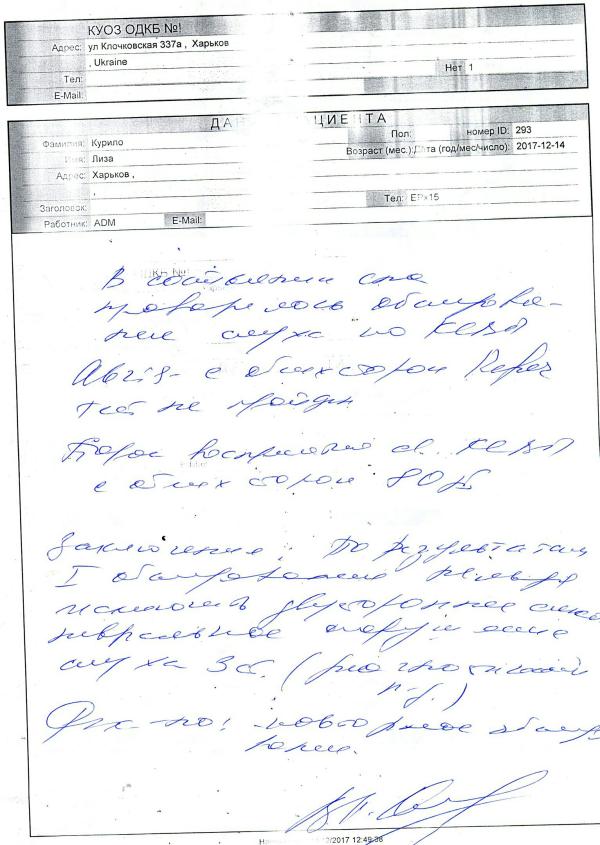 КУОЗ ОДКБ №!
Адрес: ул Клочковская 337а , Харьков
, Ukraine
Нет 1
Тел:
E-Mail:
ДА ЦИЕНТА
Фамилия: Курило
Пол: номер ID: 293
Имя: Лиза
Возраст (мес.): Дата (год/мес/число): 2017-12-14
Адрес: Харьков ,
,
Тел: EPx15
Заголовок:
Работник: ADM E-Mail:
В состоянии сна
проводилось обследова-
ние слуха по КСВП
Abris- с обеих сторон Refer
тест не пройден
Порог восприятия КСВП
с обеих сторон 80 дБ
Заключение: По результатам
I обследования нельзя
исключить двустороннее сенсо
невральное нарушение
слуха 3 ст. (
повторное обследо
вание.
/2017 12:49:38